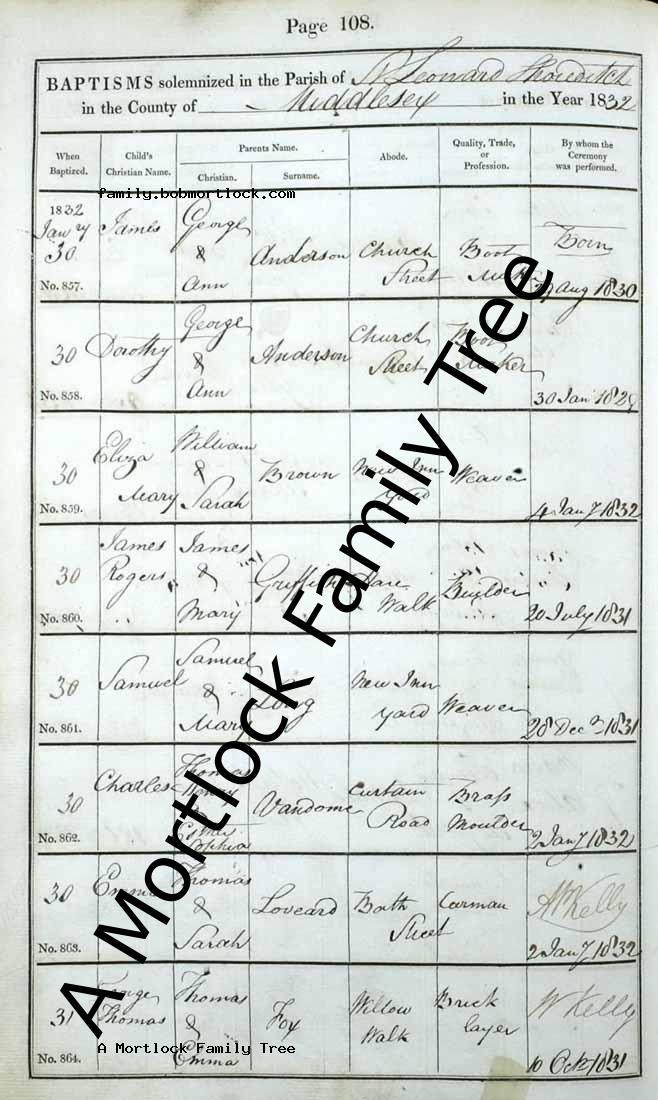 Page 108.
BAPTISMS solemnized in the Parish of St Leonard Shoreditch
in the County of Middlesex in the Year 1832
When Baptized.
Child's Christian Name.
Parents Name.
Christian.
Surname.
Abode.
Quality, Trade, or Profession.
By whom the Ceremony was performed.
family.bobmortlock.com
1832
Jany 30
No. 857.
James
George & Ann
Anderson
Church Street
Boot Maker
Born
Aug 1830
30
No. 858.
Dorothy
George & Ann
Anderson
Church Street
Boot Maker
30 Jan 1829
30
No. 859.
Eliza Mary
William & Sarah
Brown
New Inn Yard
Weaver
4 Jany 1832
30
No. 860.
James Rogers
James & Mary
Walk
Builder
20 July 1831
30
No. 861.
Samuel
Samuel & Mary
Long
New Inn Yard
Weaver
28 Decr 1831
30
No. 862.
Charles
Thomas Henry & Esther Sophia
Vandome
Curtain Road
Brass Moulder
2 Jany 1832
30
No. 863.
Emma
Thomas & Sarah
Loveard
Bath Street
Carman
Kelly
2 Jany 1832
31
No. 864.
George Thomas
Thomas & Emma
Fox
Willow Walk
Brick layer
Kelly
10 Octr 1831
A Mortlock Family Tree
A Mortlock Family Tree